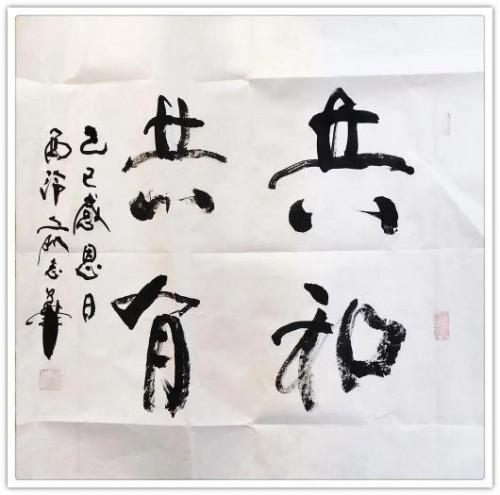 共和
共有
己巳感恩日
西泠